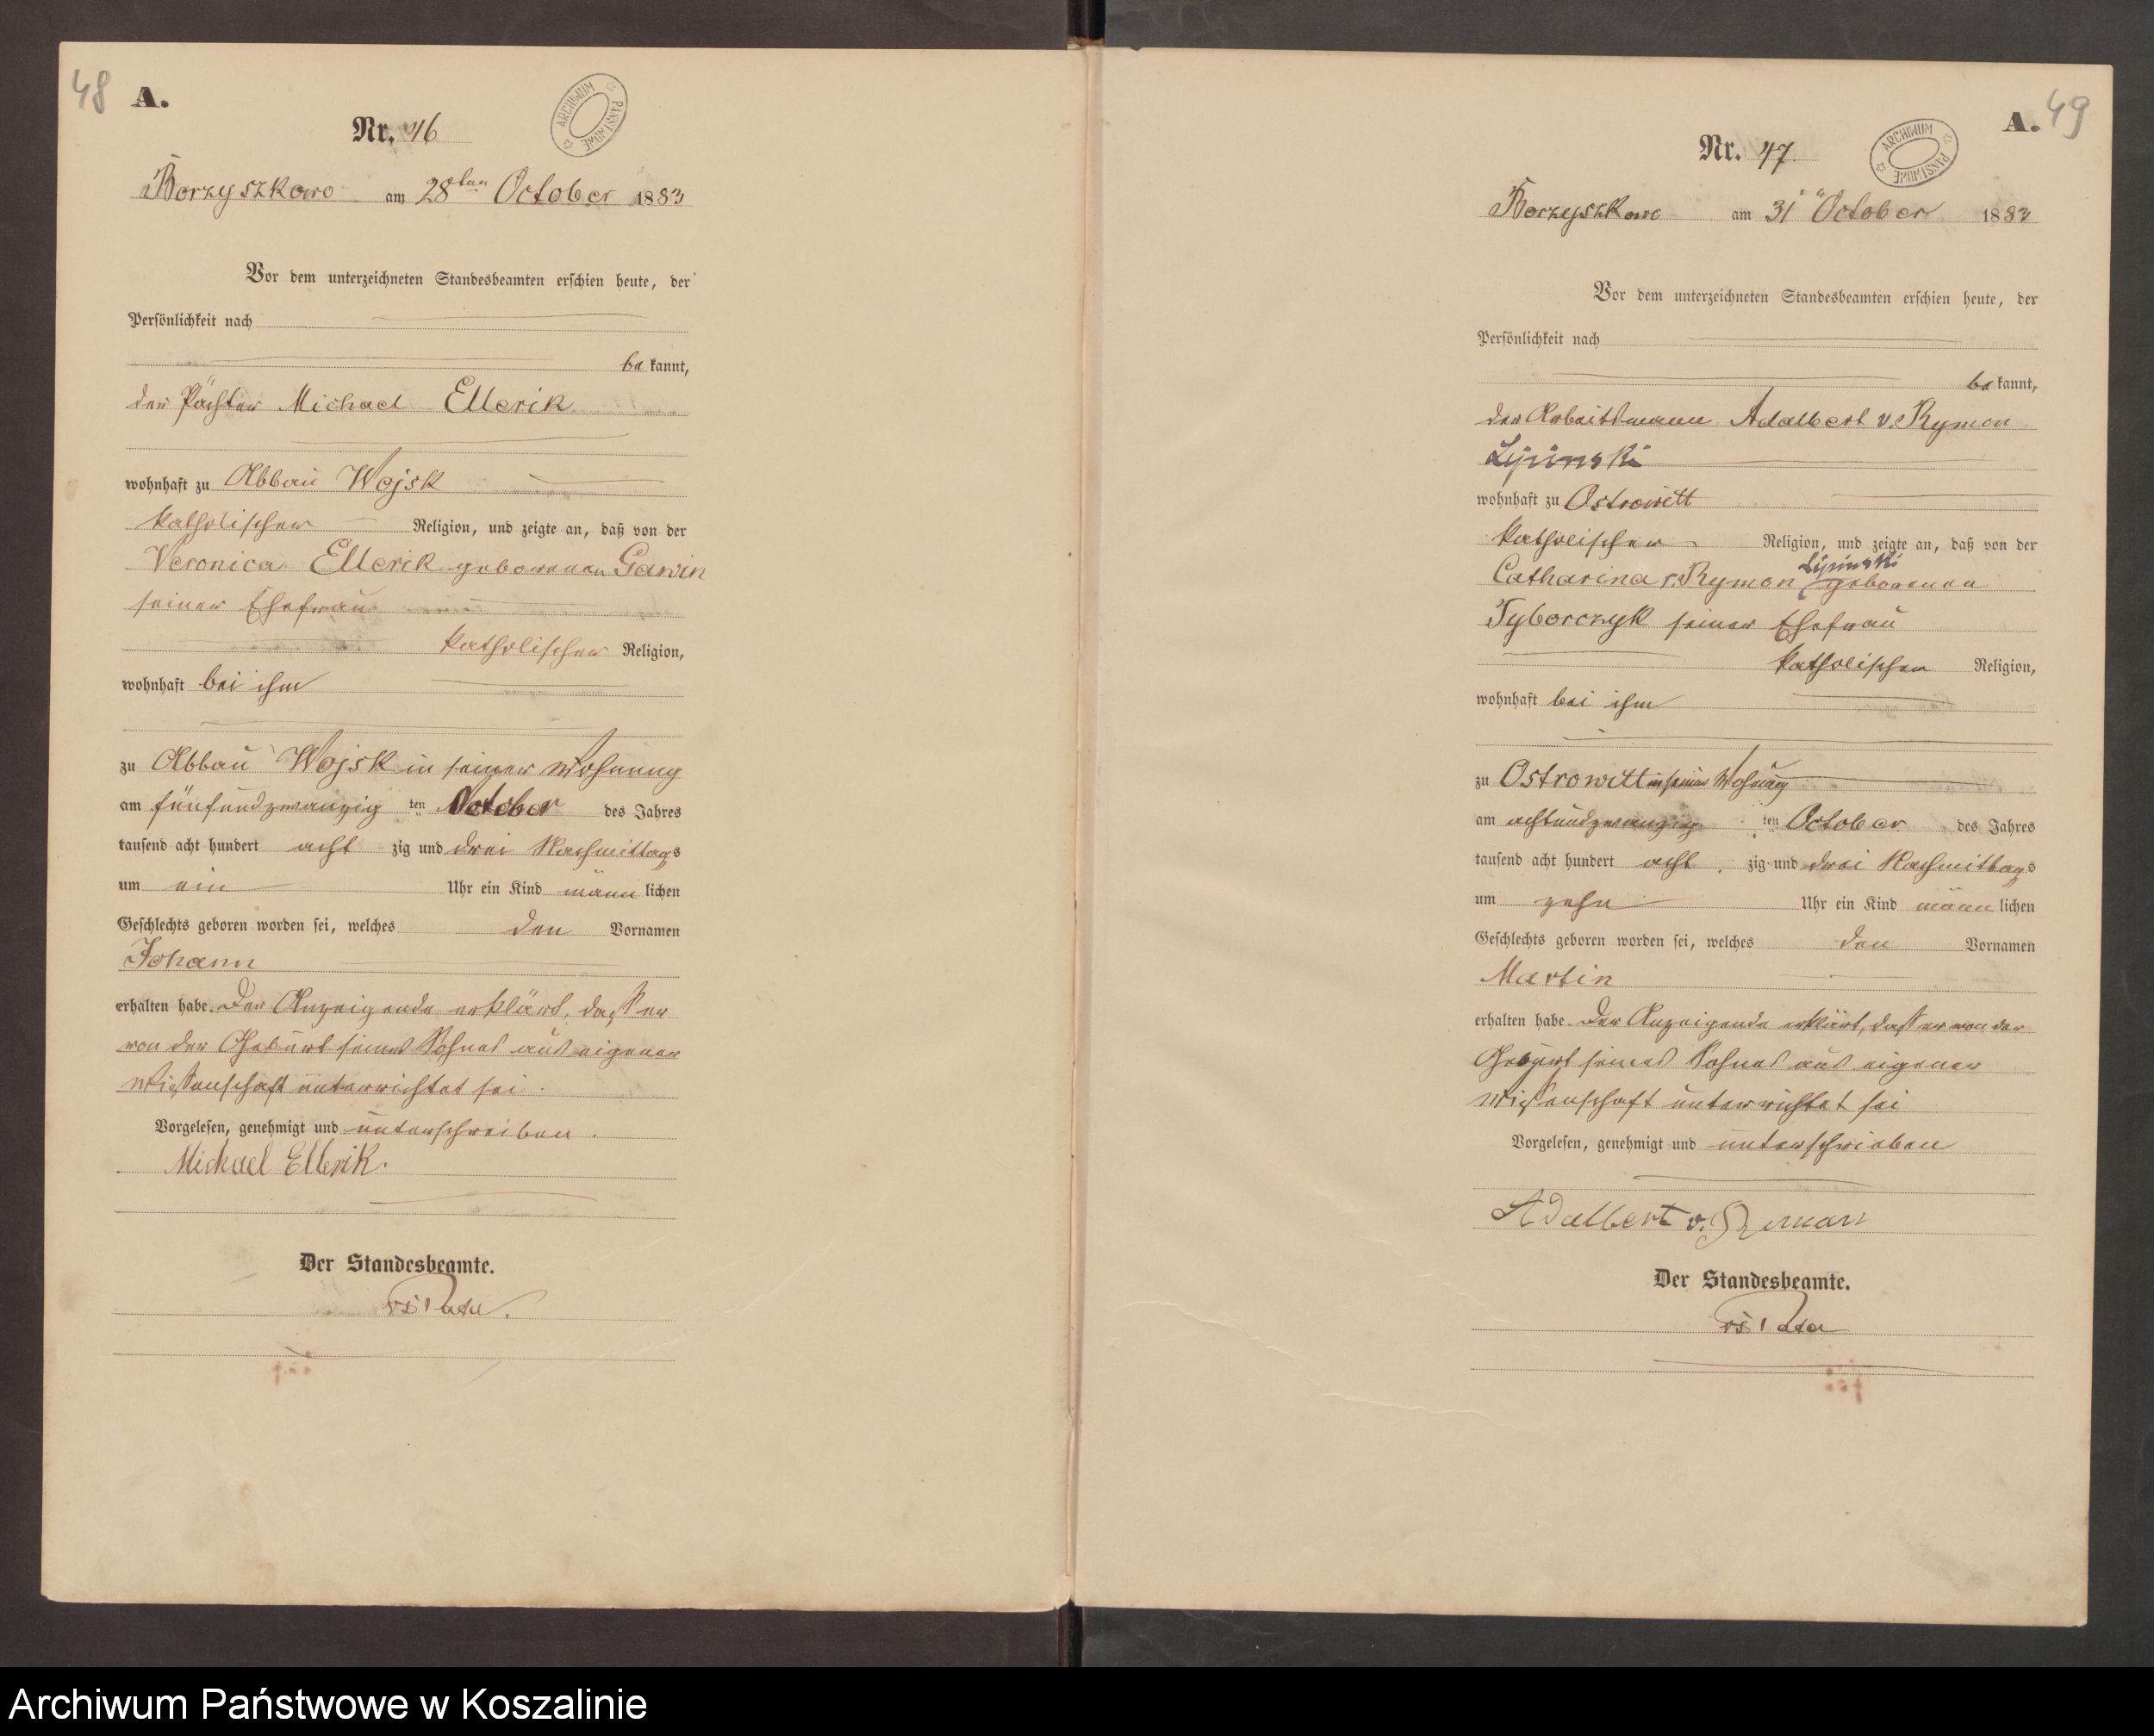 48
A.
ARCHIWUM PAŃSTWOWE
Nr. 46
Borzyszkowo am 28ten October 1883
Vor dem unterzeichneten Standesbeamten erschien heute, der
Persönlichkeit nach
be kannt,
der Pächter Michael Ellerik
wohnhaft zu Abbau Wojsk
katholischer Religion, und zeigte an, daß von der
Veronica Ellerik geborenen Gawin
seiner Ehefrau
katholischer Religion,
wohnhaft bei ihm
zu Abbau Wojsk in seiner Wohnung
am fünfundzwanzig ten October des Jahres
tausend acht hundert acht zig und drei Nachmittags
um ein Uhr ein Kind männ lichen
Geschlechts geboren worden sei, welches den Vornamen
Johann
erhalten habe. Der Anzeigende erklärt, dass er
von der Geburt seines Sohnes aus eigener
Wissenschaft unterrichtet sei.
Vorgelesen, genehmigt und unterschreiben.
Michael Ellerik.
Der Standesbeamte.
49
A.
ARCHIWUM PAŃSTWOWE
Nr. 47.
Borzyszkowo am 31 October 1883
Vor dem unterzeichneten Standesbeamten erschien heute, der
Persönlichkeit nach
be kannt,
der Arbeitsmann Adalbert v. Rymon
Lipinski
wohnhaft zu Ostrowitt
katholischer Religion, und zeigte an, daß von der
Lipinski
Catharina v. Rymon geborenen
Tyborczyk seiner Ehefrau
katholischer Religion,
wohnhaft bei ihm
zu Ostrowitt in seiner Wohnung
am achtundzwanzig ten October des Jahres
tausend acht hundert acht zig und drei Nachmittags
um zehn Uhr ein Kind männ lichen
Geschlechts geboren worden sei, welches den Vornamen
Martin
erhalten habe. Der Anzeigende erklärt, dass er von der
Geburt seines Sohnes aus eigener
Wissenschaft unterrichtet sei
Vorgelesen, genehmigt und unterschrieben
Adalbert v. Ryman
Der Standesbeamte.
Archiwum Państwowe w Koszalinie